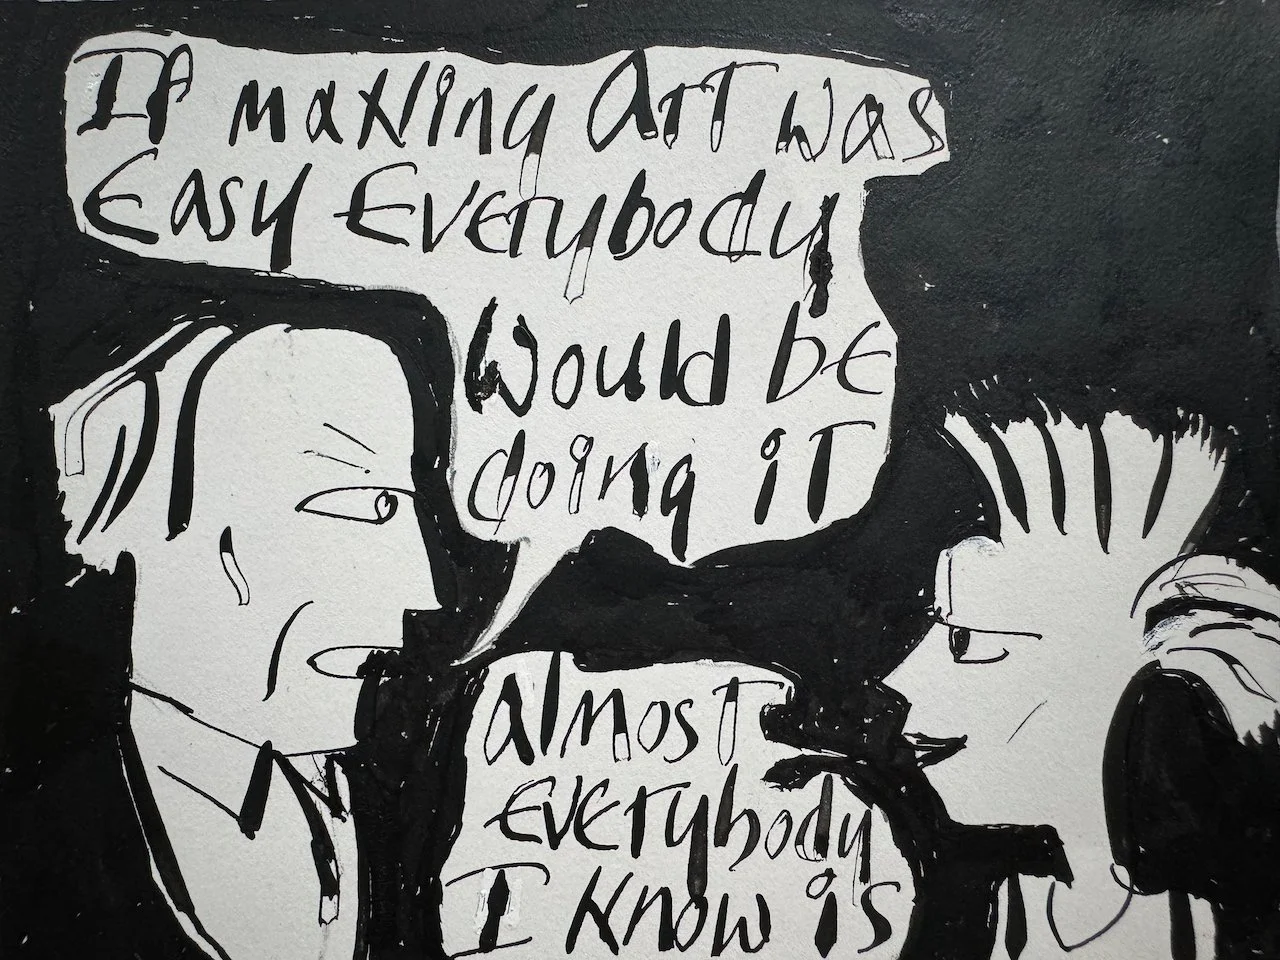 If making Art was
Easy Everybody
Would be
doing iT
almosT
Everybody
I Know is